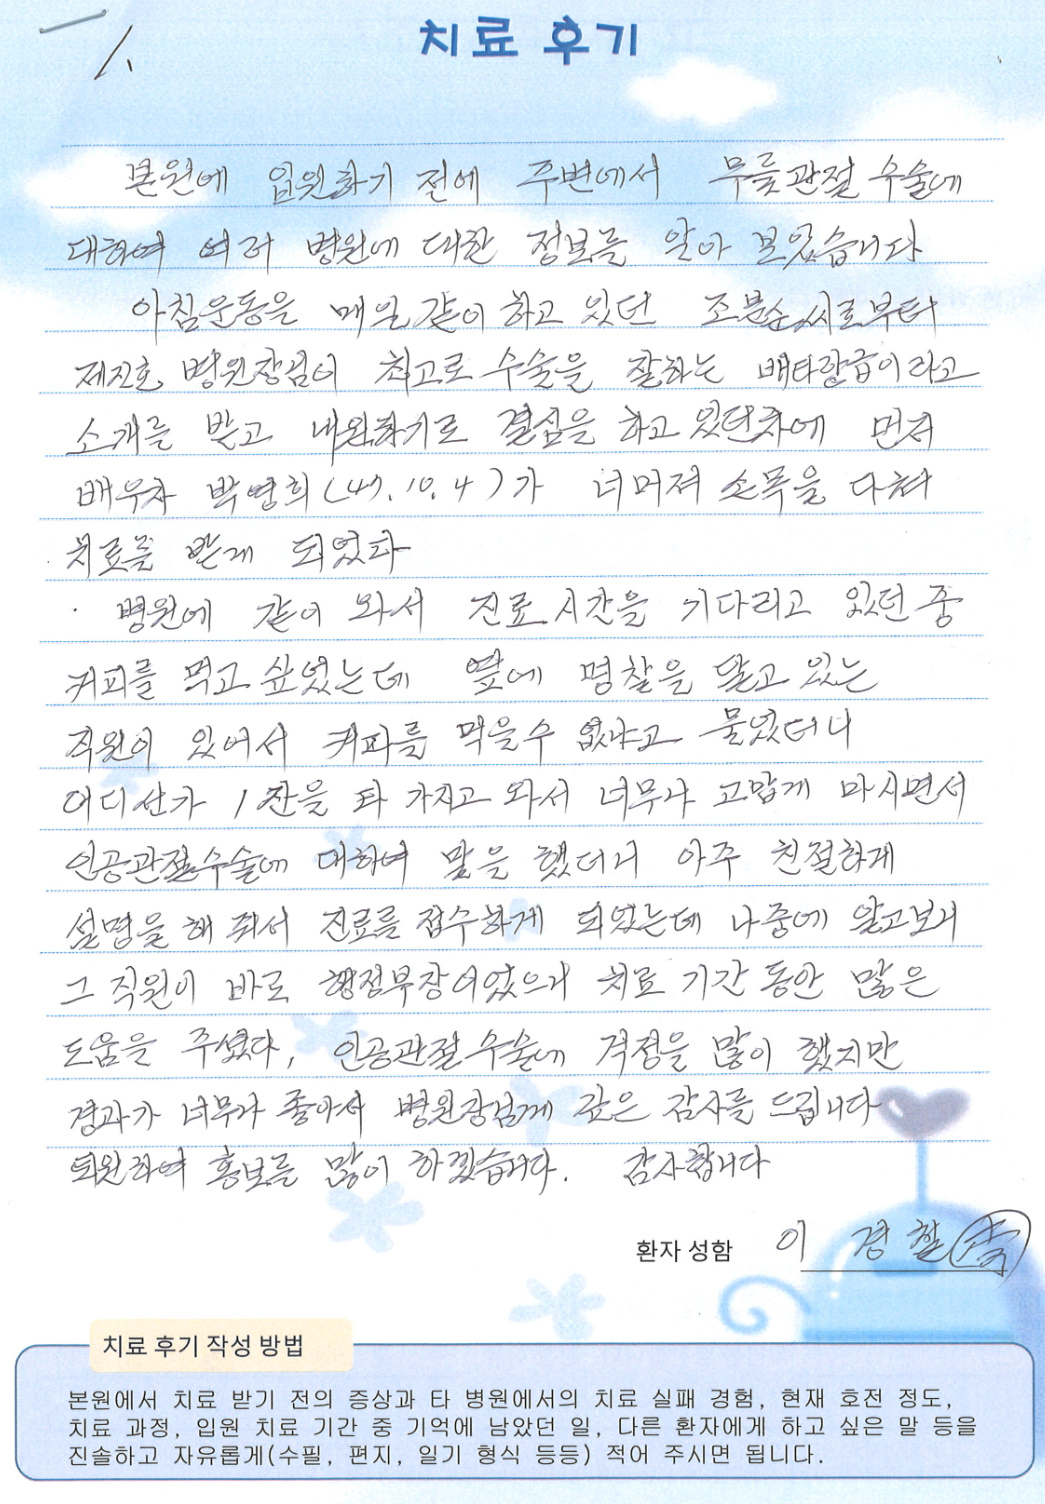 치료 후기
본원에 입원하기 전에 주변에서 무릎관절 수술에
대하여 여러 병원에 대한 정보를 알아 보았습니다
아침운동을 매일 같이 하고 있던 조분순씨로부터
제진호 병원장님이 최고로 수술을 잘하는 베타랑급이라고
소개를 받고 내원하기로 결심을 하고 있던차에 먼저
배우자 박영희(47.10.4)가 너머져 손목을 다쳐
치료를 받게 되었다
병원에 같이 와서 진료시간을 기다리고 있던 중
커피를 먹고 싶었는데 옆에 명찰을 달고 있는
직원이 있어서 커피를 먹을수 없냐고 물었더니
어디선가 1잔을 타 가지고 와서 너무나 고맙게 마시면서
인공관절수술에 대하여 말을 했더니 아주 친절하게
설명을 해 줘서 진료를 접수하게 되었는데 나중에 알고보니
그 직원이 바로 행정부장이었으며 치료 기간 동안 많은
도움을 주셨다, 인공관절 수술에 걱정을 많이 했지만
경과가 너무나 좋아서 병원장님께 깊은 감사를 드립니다
퇴원하여 홍보를 많이 하겠습니다. 감사합니다
환자 성함 이 경철
치료 후기 작성 방법
본원에서 치료 받기 전의 증상과 타 병원에서의 치료 실패 경험, 현재 호전 정도,
치료 과정, 입원 치료 기간 중 기억에 남았던 일, 다른 환자에게 하고 싶은 말 등을
진솔하고 자유롭게(수필, 편지, 일기 형식 등등) 적어 주시면 됩니다.